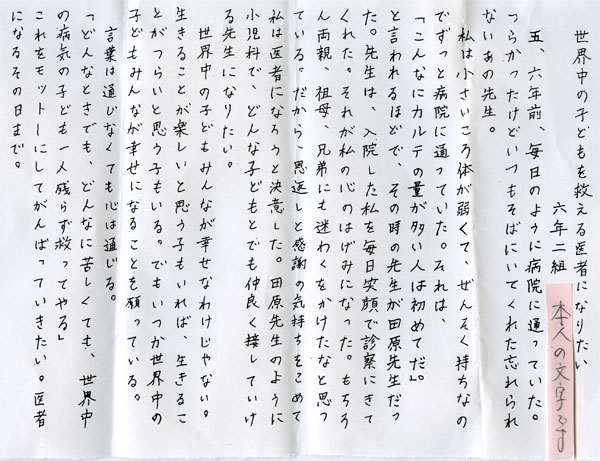 世界中の子どもを救える医者になりたい
六年二組
本人の文字です
五、六年前、毎日のように病院に通っていた。
つらかったけどいつもそばにいてくれた忘れられ
ないあの先生。
私は小さいころ体が弱くて、ぜんそく持ちなの
でずっと病院に通っていた。それは、
「こんなにカルテの量が多い人は初めてだ」。
と言われるほどで、その時の先生が田原先生だっ
た。先生は、入院した私を毎日笑顔で診察にきて
くれた。それが私の心のはげみになった。もちろ
ん両親、祖母、兄弟にも迷わくをかけたなと思っ
ている。だから、恩返しと感謝の気持ちをこめて
私は医者になろうと決意した。田原先生のように
小児科で、どんな子どもとでも仲良く接していけ
る先生になりたい。
世界中の子どもみんなが幸せなわけじゃない。
生きることが楽しいと思う子もいれば、生きるこ
とがつらいと思う子もいる。でもいつか世界中の
子どもみんなが幸せになることを願っている。
言葉は通じなくても心は通じる。
「どんなときでも、どんなに苦しくても、世界中
の病気の子ども一人残らず救ってやる」
これをモットーにしてがんばっていきたい。医者
になるその日まで。